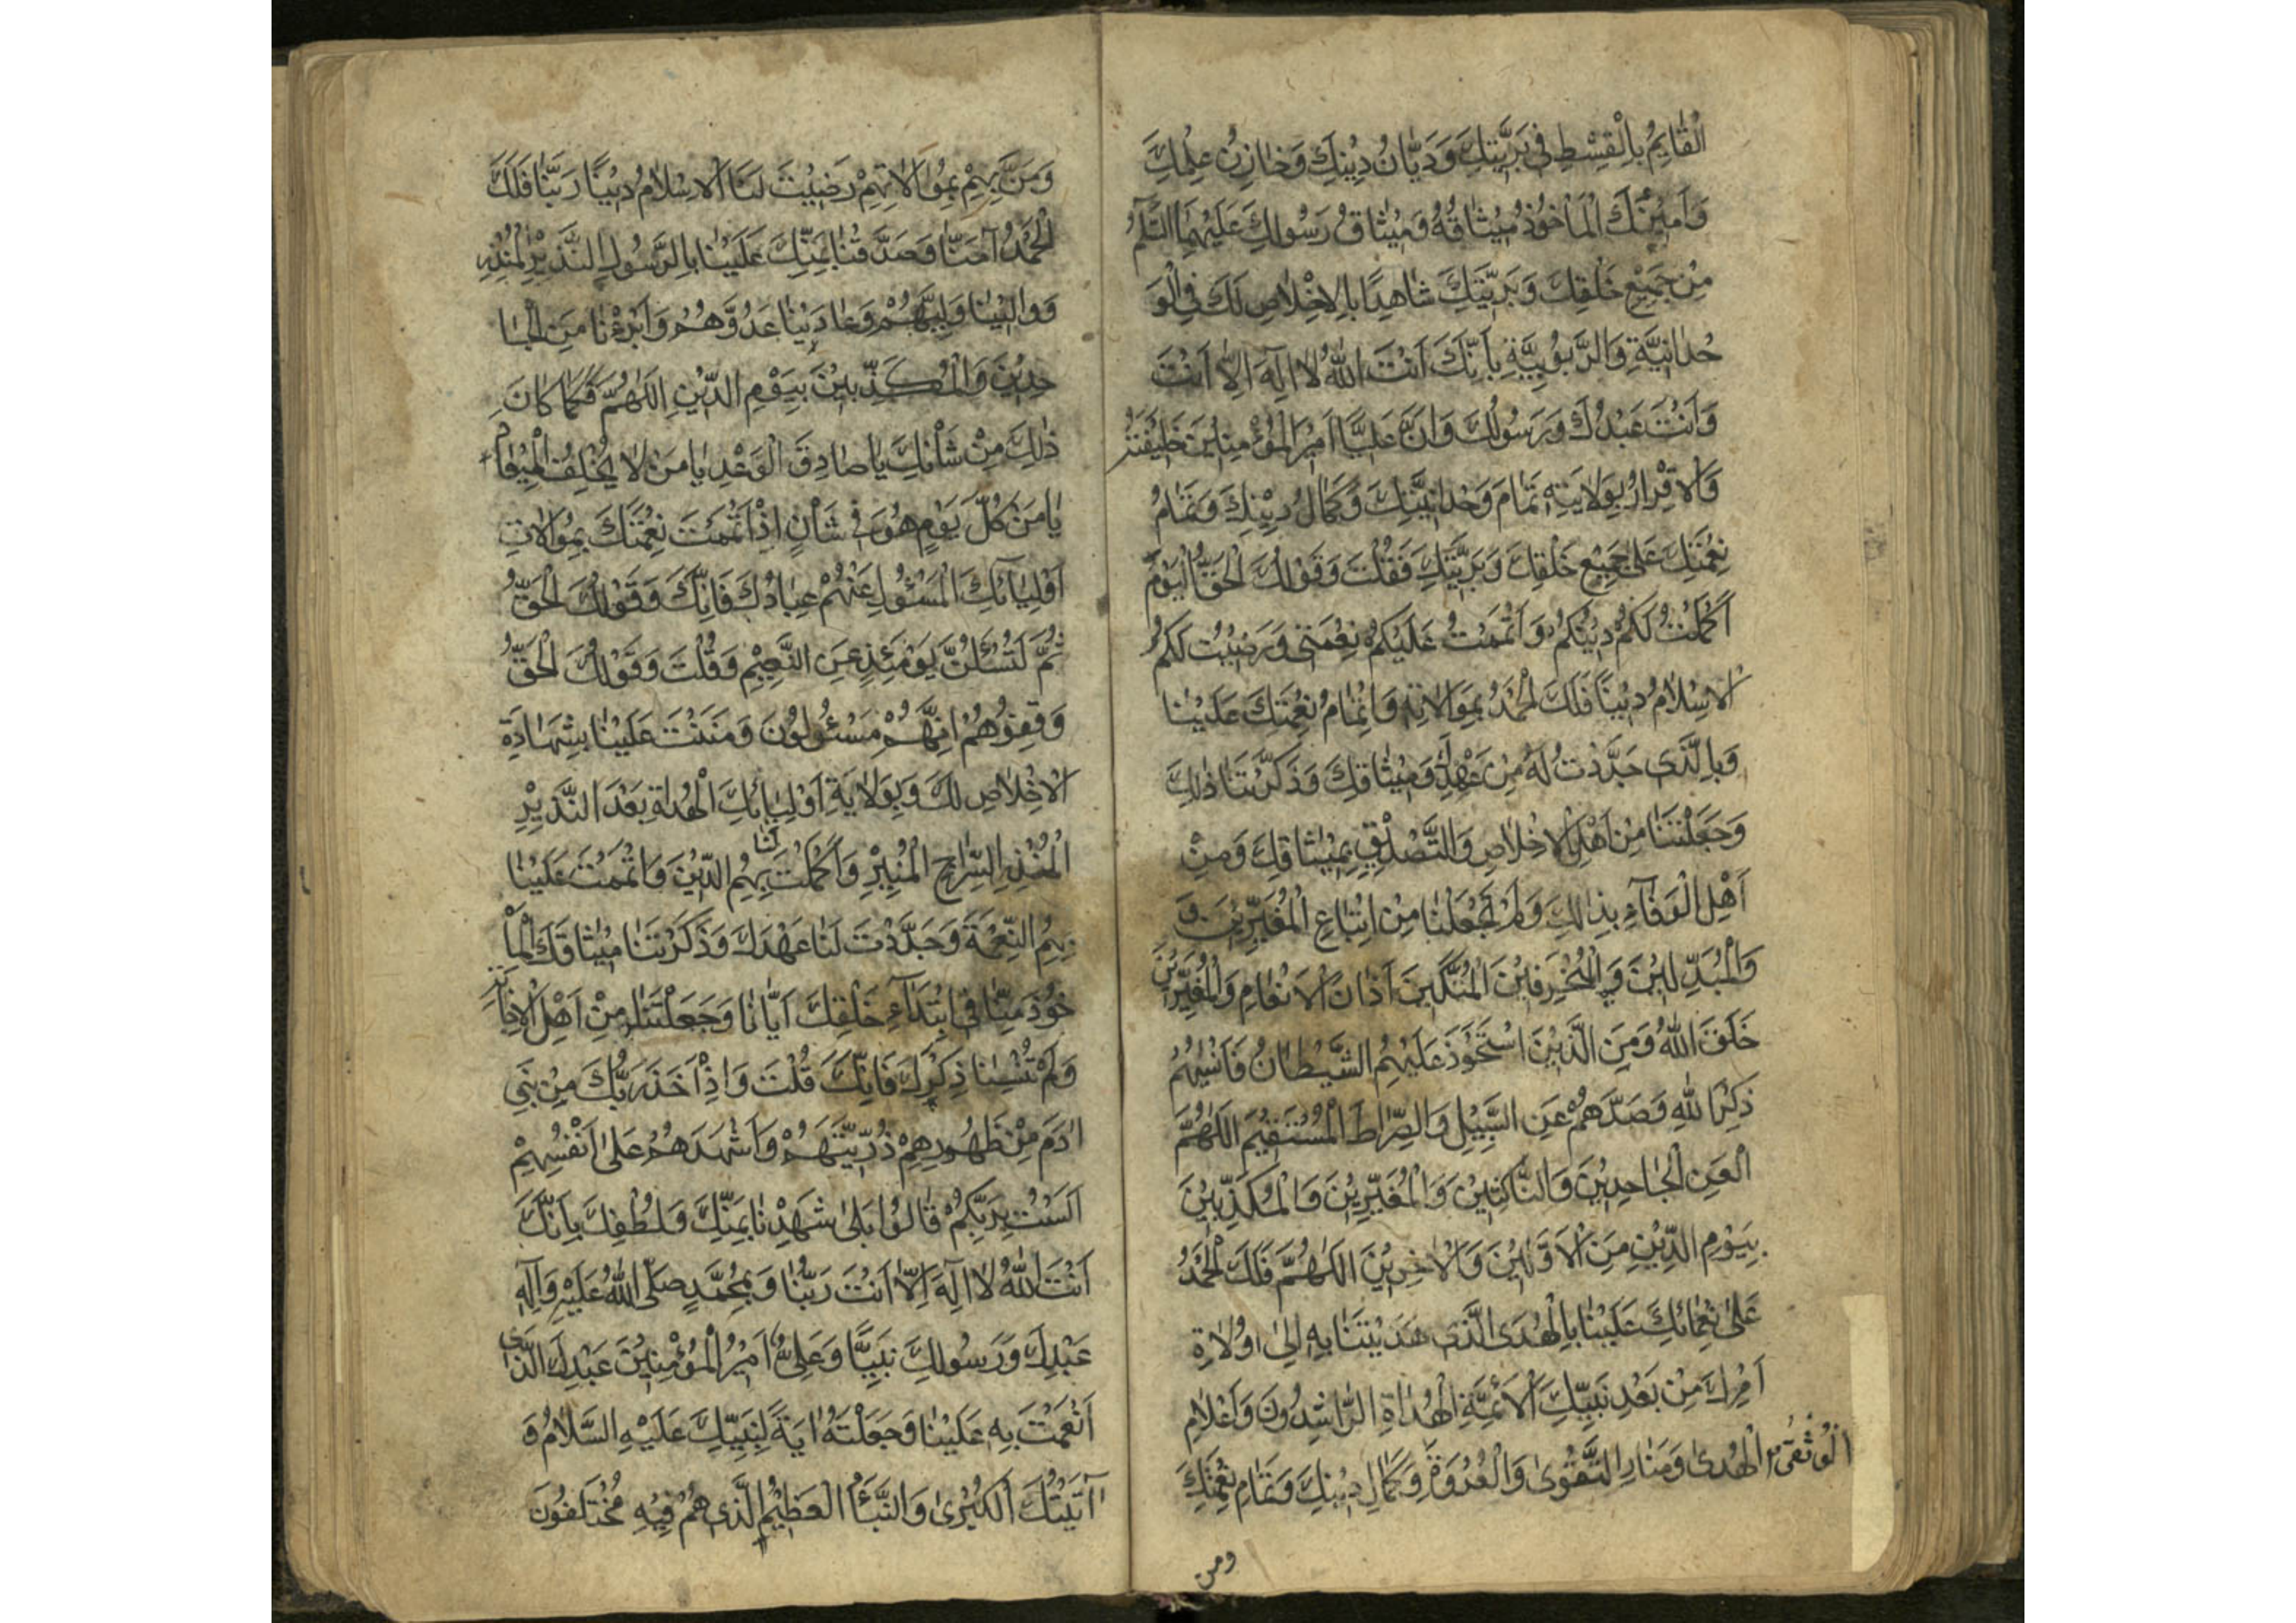 الْقٰائِمُ بِالْقِسْطِ فِي بَرِيَّتِكَ وَدَيّٰانُ دِيْنِكَ وَخٰازِنُ عِلْمِكَ
وَاَمِيْنُكَ الْمَأْخُوْذُ مِيْثٰاقُهُ وَمِيْثٰاقُ رَسُوْلِكَ عَلَيْهِمَا السَّلٰمُ
مِنْ جَمِيْعِ خَلْقِكَ وَبَرِيَّتِكَ شٰاهِدًا بِالاِخْلٰاصِ لَكَ فِي الْوَ
حْدٰانِيَّةِ وَالرَّبُوْبِيَّةِ بِاَنَّكَ اَنْتَ اللّٰهُ لٰا اِلٰهَ اِلّٰا اَنْتَ
وَاَنْتَ عَبْدُكَ وَرَسُوْلُكَ وَاَنَّ عَلِيًّا اَمِيْرُ الْمُؤْمِنِيْنَ خَلِيْفَتُهُ
وَالاِقْرٰارُ بِوَلٰايَتِهِ تَمٰامَ وَحْدٰانِيَّتِكَ وَكَمٰالُ دِيْنِكَ وَتَمٰامُ
نِعْمَتِكَ عَلىٰ جَمِيْعِ خَلْقِكَ وَبَرِيَّتِكَ فَقُلْتَ وَقَوْلُكَ الْحَقُّ الْيَوْمَ
اَكْمَلْتُ لَكُمْ دِيْنَكُمْ وَاَتْمَمْتُ عَلَيْكُمْ نِعْمَتِي وَرَضِيْتُ لَكُمُ
الاِسْلٰامُ دِيْنًا فَلَكَ الْحَمْدُ بِمَوٰالاتِهِ وَاِتْمٰامُ نِعْمَتِكَ عَلَيْنٰا
وَبِالَّذِى جَدَّدْتَ لَهُ مِنْ عَهْدِكَ وَمِيْثٰاقِكَ وَذَكَّرْتَنٰا ذٰلِكَ
وَجَعَلْتَنٰا مِنْ اَهْلِ الاِخْلٰاصِ وَالتَّصْدِيْقِ بِمِيْثٰاقِكَ وَمِنْ
اَهْلِ الْوَفٰآءِ بِذٰالِكَ وَلَمْ تَجْعَلْنٰا مِنْ اِتْبٰاعِ الْمُغَيِّرِيْنَ وَ
وَالْمُبَدِّلِيْنَ وَالْمُنْحَرِفِيْنَ الْمُبَتِّكِيْنَ اٰذٰانَ الاَنْعٰامِ وَالْمُغَيِّرِيْنَ
خَلَقَ اللّٰهُ وَمِنَ الَّذِيْنَ اسْتَحْوَذَ عَلَيْهِمُ الشَّيْطٰانُ فَاَنْسٰيهُمُ
ذِكْرَ اللّٰهِ وَصَدَّهُمْ عَنِ السَّبِيْلِ وَالصِّرٰاطَ الْمُسْتَقِيْمَ اللّٰهُمَّ
الْعَنِ الْجٰاحِدِيْنَ وَالنّٰاكِثِيْنَ وَالْمُغَيِّرِيْنَ وَالْمُكَذِّبِيْنَ
بِيَوْمِ الدِّيْنِ مِنَ الاَوَّلِيْنَ وَالاٰخِرِيْنَ اللّٰهُمَّ فَلَكَ الْحَمْدُ
عَلىٰ نِعْمٰائِكَ عَلَيْنٰا بِالْهُدَى الَّذِى هَدَيْتَنٰا بِهِ اِلىٰ اوُلٰاةِ
اَمْرِكَ مِنْ بَعْدِ نَبِيِّكَ الاَئِمَّةِ الْهُدٰاةِ الرّٰاشِدُونَ وَاَعْلٰامِ
الْهُدىٰ وَمَنٰارِ التَّقْوىٰ وَالْعُرْوَةِ الْوُثْقىٰ وَكَمٰالِ دِيْنِكَ وَتَمٰامِ نِعْمَتِكَ
ومن
وَمَنْ بِهِمْ بِمُوٰالاٰتِهِمْ رَضِيْتَ لَنَا الاِسْلٰامُ دِيْنًا رَبَّنٰا فَلَكَ
الْحَمْدُ اٰمَنّٰا وَصَدَّقْنٰا بِمَنِّكَ عَلَيْنٰا بِالرَّسُوْلِ النَّذِيْرِ الْمُنْذِرِ
وَوٰالَيْنٰا وَلِيَّهُمْ وَعٰادَيْنٰا عَدُوَّهُمْ وَاَبْرِءْنٰا مِنَ الْجٰا
حِدِيْنَ وَالْمُكَذِّبِيْنَ بِيَوْمِ الدِّيْنِ اللّٰهُمَّ فَكَمٰا كٰانَ
ذٰلِكَ مِنْ شَأْنِكَ يٰا صٰادِقَ الْوَعْدِ يٰا مَنْ لٰا يُخْلِفُ الْمِيْعٰادَ
يٰا مَنْ كُلَّ يَوْمٍ هُوَ فِي شَأْنٍ اِذْ اَتْمَمْتَ نِعْمَتَكَ بِمُوٰالاٰتِ
اَوْلِيٰائِكَ الْمَسْئُوْلِ عَنْهُمْ عِبٰادُكَ فَاِنَّكَ وَقَوْلُكَ الْحَقُّ
ثُمَّ لَتُسْئَلُنَّ يَوْمَئِذٍ عَنِ النَّعِيْمِ وَقُلْتَ وَقَوْلُكَ الْحَقُّ
وَقِفُوْهُمْ اِنَّهُمْ مَسْئُوْلُوْنَ وَمَنَنْتَ عَلَيْنٰا بِشَهٰادَةِ
الاِخْلٰاصِ لَكَ وَبِوَلٰايَةِ اَوْلِيٰائِكَ الْهُدٰاةِ بَعْدَ النَّذِيْرِ
الْمُنْذِرِ السِّرٰاجِ الْمُنِيْرِ وَاَكْمَلْتَ لَنٰا بِهِمُ الدِّيْنَ وَاَتْمَمْتَ عَلَيْنٰا
بِهِمُ النِّعْمَةَ وَجَدَّدْتَ لَنٰا عَهْدَكَ وَذَكَّرْتَنٰا مِيْثٰاقَكَ الْمَأْ
خُوْذَ مِنّٰا فِي ابْتِدٰآءِ خَلْقِكَ اَيّٰانٰا وَجَعَلْتَنٰا مِنْ اَهْلِ الاِجٰابَةِ
وَلَمْ تُنْسِنٰا ذِكْرَكَ فَاِنَّكَ قُلْتَ وَاِذْ اَخَذَ رَبُّكَ مِنْ بَنِي
اٰدَمَ مِنْ ظُهُوْرِهِمْ ذُرِّيَّتَهُمْ وَاَشْهَدَهُمْ عَلىٰ اَنْفُسِهِمْ
اَلَسْتُ بِرَبِّكُمْ قٰالُوْا بَلىٰ شَهِدْنٰا بِمَنِّكَ وَلُطْفِكَ بِاَنَّكَ
اَنْتَ اللّٰهُ لٰا اِلٰهَ اِلّٰا اَنْتَ رَبُّنٰا وَبِمُحَمَّدٍ صَلَّى اللّٰهُ عَلَيْهِ وَاٰلِهِ
عَبْدِكَ وَرَسُوْلِكَ نَبِيًّا وَعَلِيٌّ اَمِيْرُ الْمُؤْمِنِيْنَ عَبْدِكَ الَّذِى
اَنْعَمْتَ بِهِ عَلَيْنٰا وَجَعَلْتَهُ اٰيَةً لِنَبِيِّكَ عَلَيْهِ السَّلٰامُ وَ
اٰيَتُكَ الْكُبْرىٰ وَالنَّبَأُ الْعَظِيْمُ الَّذِى هُمْ فِيْهِ مُخْتَلِفُوْنَ